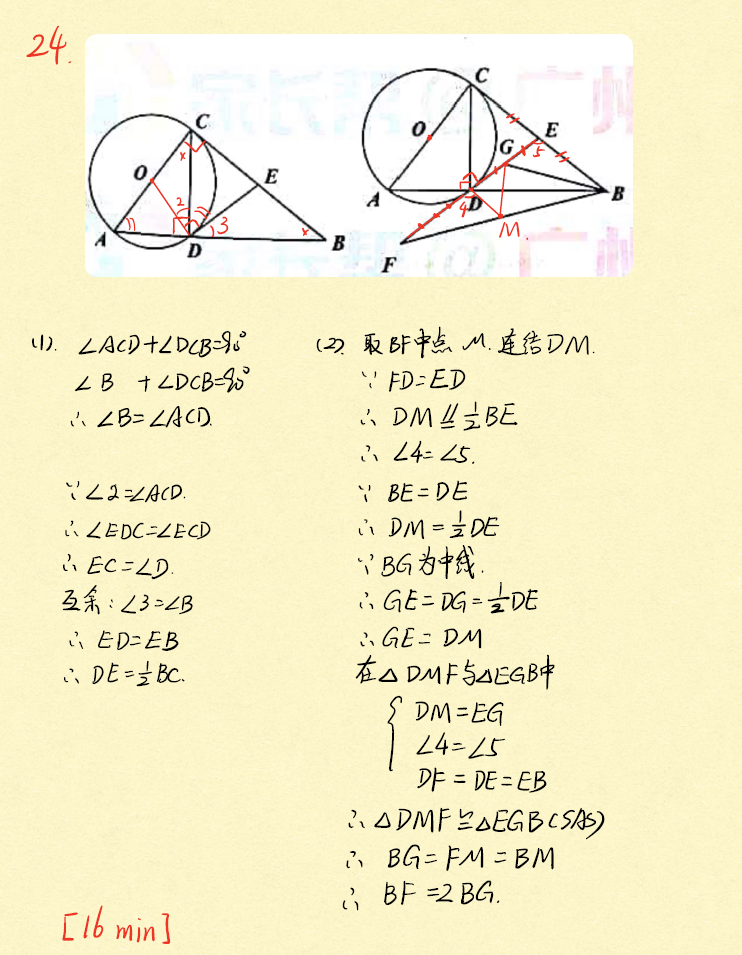 24.
C
O
E
A
1
2
3
D
B
C
O
E
G
5
A
4
D
B
M
F
(1). ∠ACD+∠DCB=90°
∠B +∠DCB=90°
∴ ∠B=∠ACD.
∵∠2=∠ACD.
∴∠EDC=∠ECD
∴ EC=∠D.
互余:∠3=∠B
∴ ED=EB
∴ DE=½BC.
(2) 取BF中点 M. 连结DM.
∵ FD=ED
∴ DM∥=½BE
∴ ∠4=∠5.
∵ BE=DE
∴ DM=½DE
∵BG为中线.
∴ GE=DG=½DE
∴GE=DM
在△DMF与△EGB中
{ DM=EG
∠4=∠5
DF=DE=EB
∴△DMF≌△EGB(SAS)
∴ BG=FM=BM
∴ BF=2BG.
[16 min]